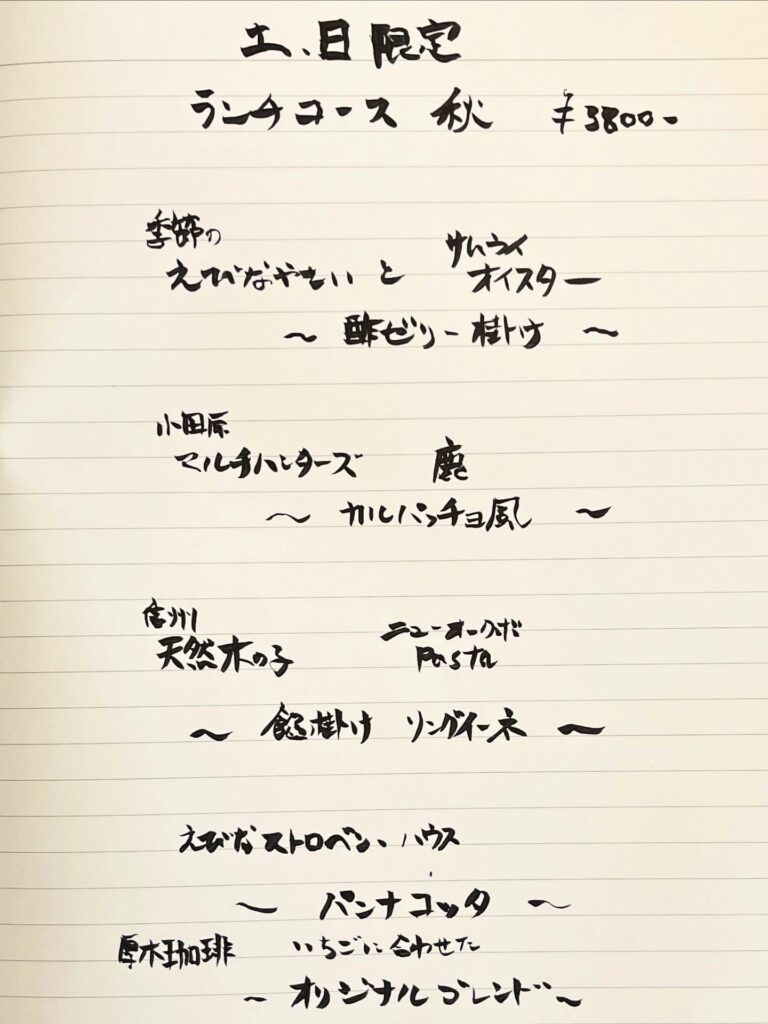 土、日限定
ランチコース 秋 ¥3800-
季節の サムライ
えびなやさい と オイスター
～ 酢ゼリー掛け ～
小田原
マルチハンターズ 鹿
～ カルパッチョ風 ～
信州 ニューオークボ
天然木の子 Pasta
～ 餡掛け リングイーネ ～
えびなストロベリーハウス
～ パンナコッタ ～
厚木珈琲 いちごに合わせた
～ オリジナルブレンド ～